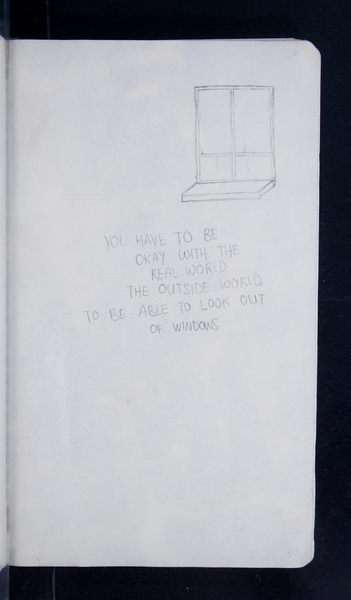 YOU HAVE TO BE
OKAY WITH THE
REAL WORLD.
THE OUTSIDE WORLD
TO BE ABLE TO LOOK OUT
OF WINDOWS